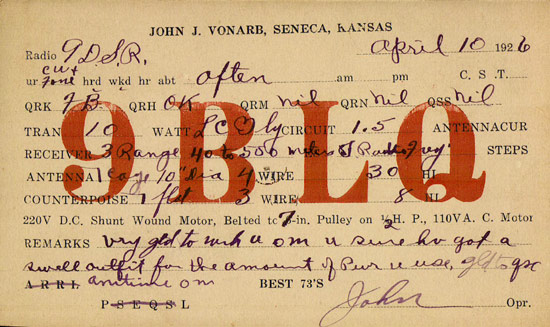 JOHN J. VONARB, SENECA, KANSAS
Radio 9DSR, April 10 1926
ur CW & fone hrd wkd hr abt often am pm C. S. T.
9BLQ
QRK 7 B QRH OK QRM Nil QRN Nil QSS Nil
TRAN 10 WATT CIRCUIT 1.5 ANTENNACUR
RECEIVER 3 Range 40 to 500 meters STEPS
ANTENNA 1 cage 10" dia 4 WIRE 30 HI
COUNTERPOISE 1 flat 3 WIRE 8 HI
220V D.C. Shunt Wound Motor, Belted to 7-in. Pulley on ½ H. P., 110V A. C. Motor
REMARKS vry gld to wrk u o m u sure hv got a
swell outfit for the amount of Pwr u use, gld to qsr
A R R L anitime om BEST 73'S
P S E Q S L John Opr.